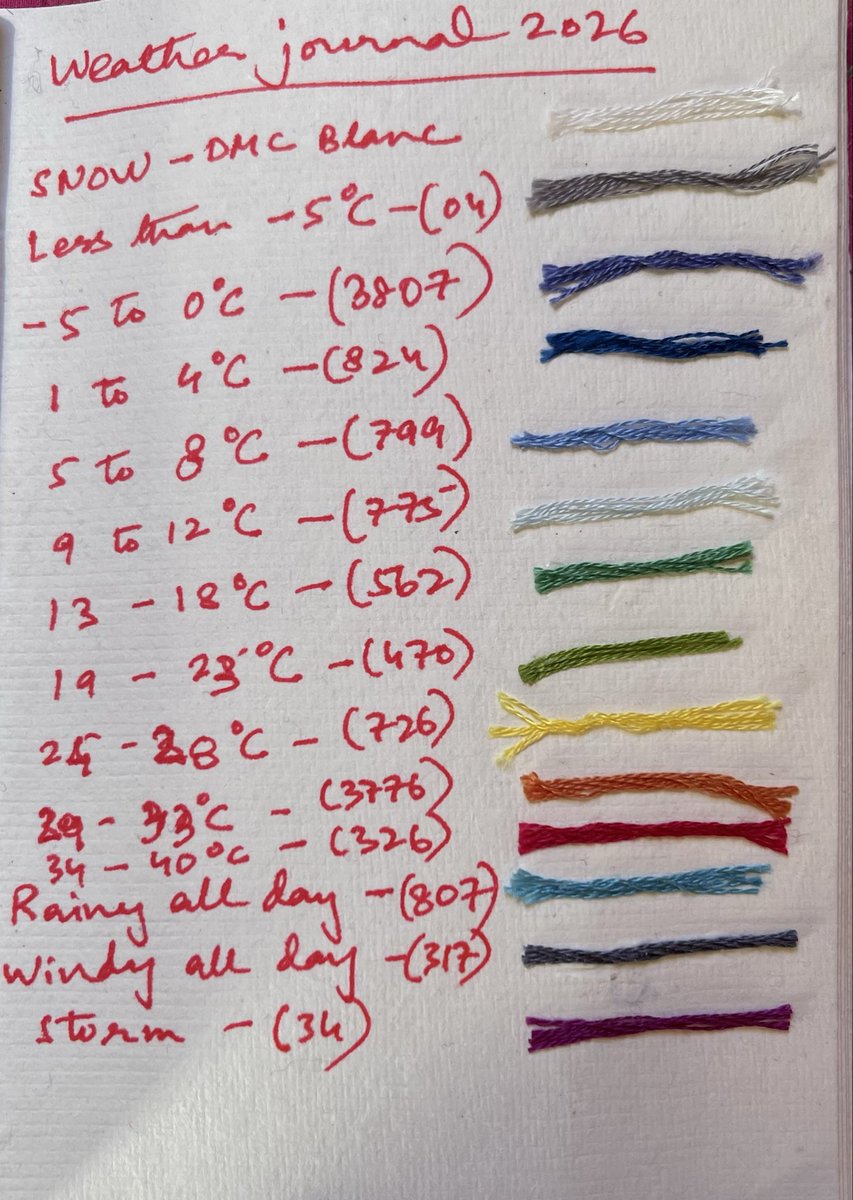 Weather journal 2026
SNOW - DMC Blanc
Less than -5°C - (04)
-5 to 0°C - (3807)
1 to 4°C - (824)
5 to 8°C - (799)
9 to 12°C - (775)
13 - 18°C - (562)
19 - 23°C - (470)
24 - 28°C - (726)
29 - 33°C - (3776)
34 - 40°C - (326)
Rainy all day - (807)
Windy all day - (317)
Storm - (34)